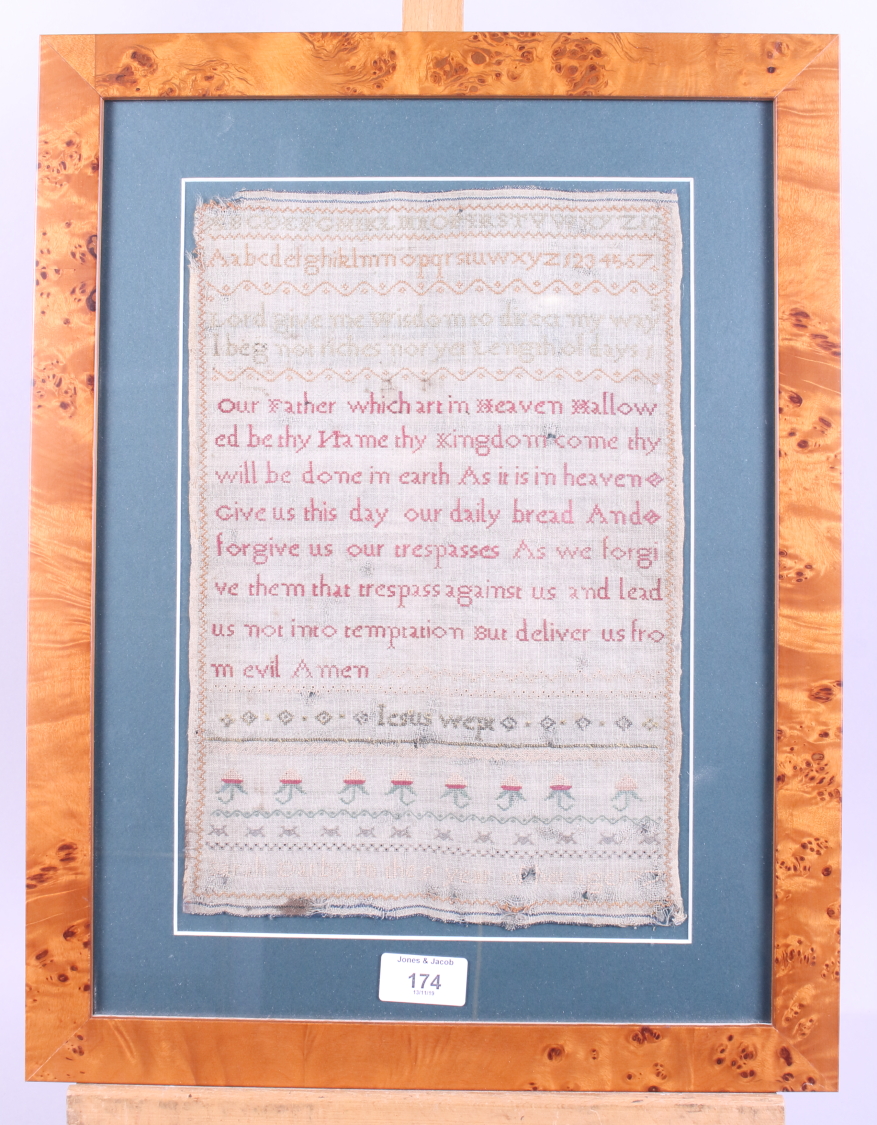 ABCDEFGHIKLMNOPQRSTVWXYZ12
Aabcdefghiklmnopqrstuwxyz1234567
Lord give me Wisdom to direct my ways
I beg not riches nor yet Length of days
Our Father which art in Heaven Hallow
ed be thy Name thy Kingdom come thy
will be done in earth As it is in heaven
Give us this day our daily bread And
forgive us our trespasses As we forgi
ve them that trespass against us and lead
us not into temptation But deliver us fro
m evil Amen
Iesus wept
Jones & Jacob
174
13/11/19